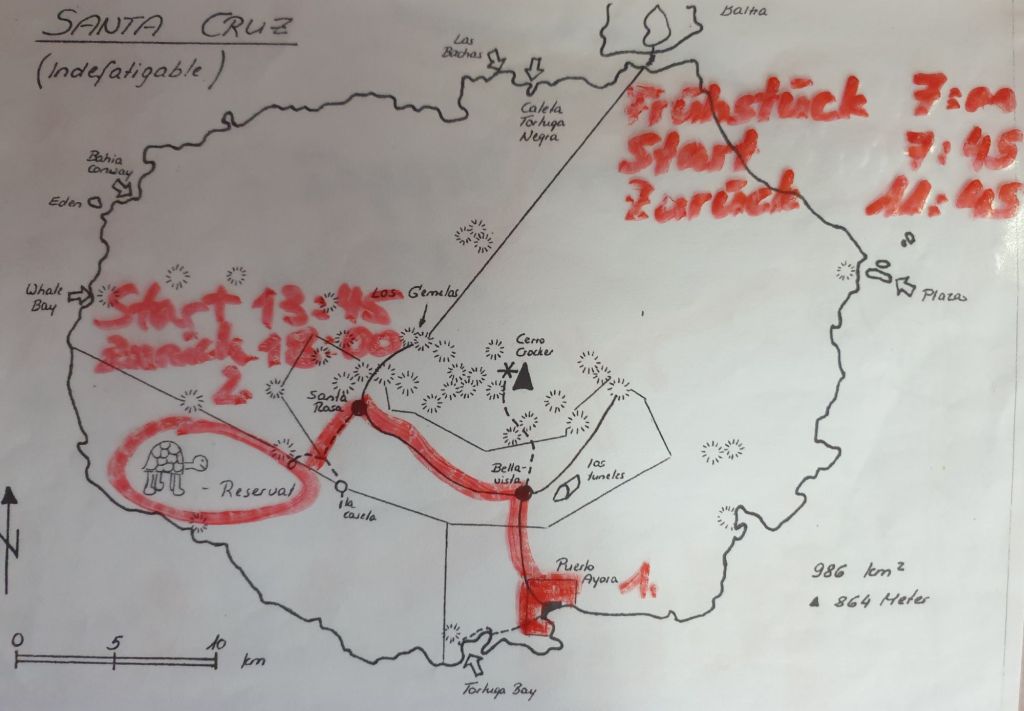 SANTA CRUZ
(Indefatigable)
Baltra
Las
Bachas
Caleta
Tortuga
Negra
Frühstück 7:00
Start 7:45
Zurück 11:45
Bahia
Conway
Eden
Whale
Bay
Plazas
Start 13:45
Zurück 18:00
2.
Los Gemelos
Cerro
Crocker
Santa
Rosa
- Reservat
la
caseta
Bella-
vista
los
tuneles
Puerto
Ayora
1.
986 km²
▲ 864 Meter
N
0 5 10 km
Tortuga Bay